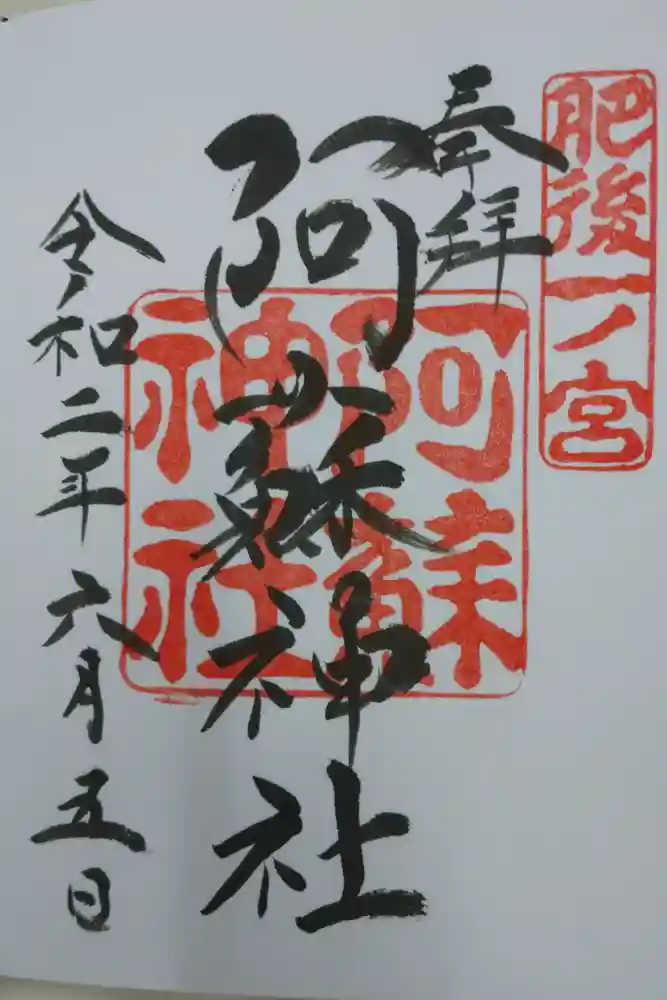 肥後一ノ宮
奉拝
阿蘇神社
阿蘇神社
令和二年六月五日